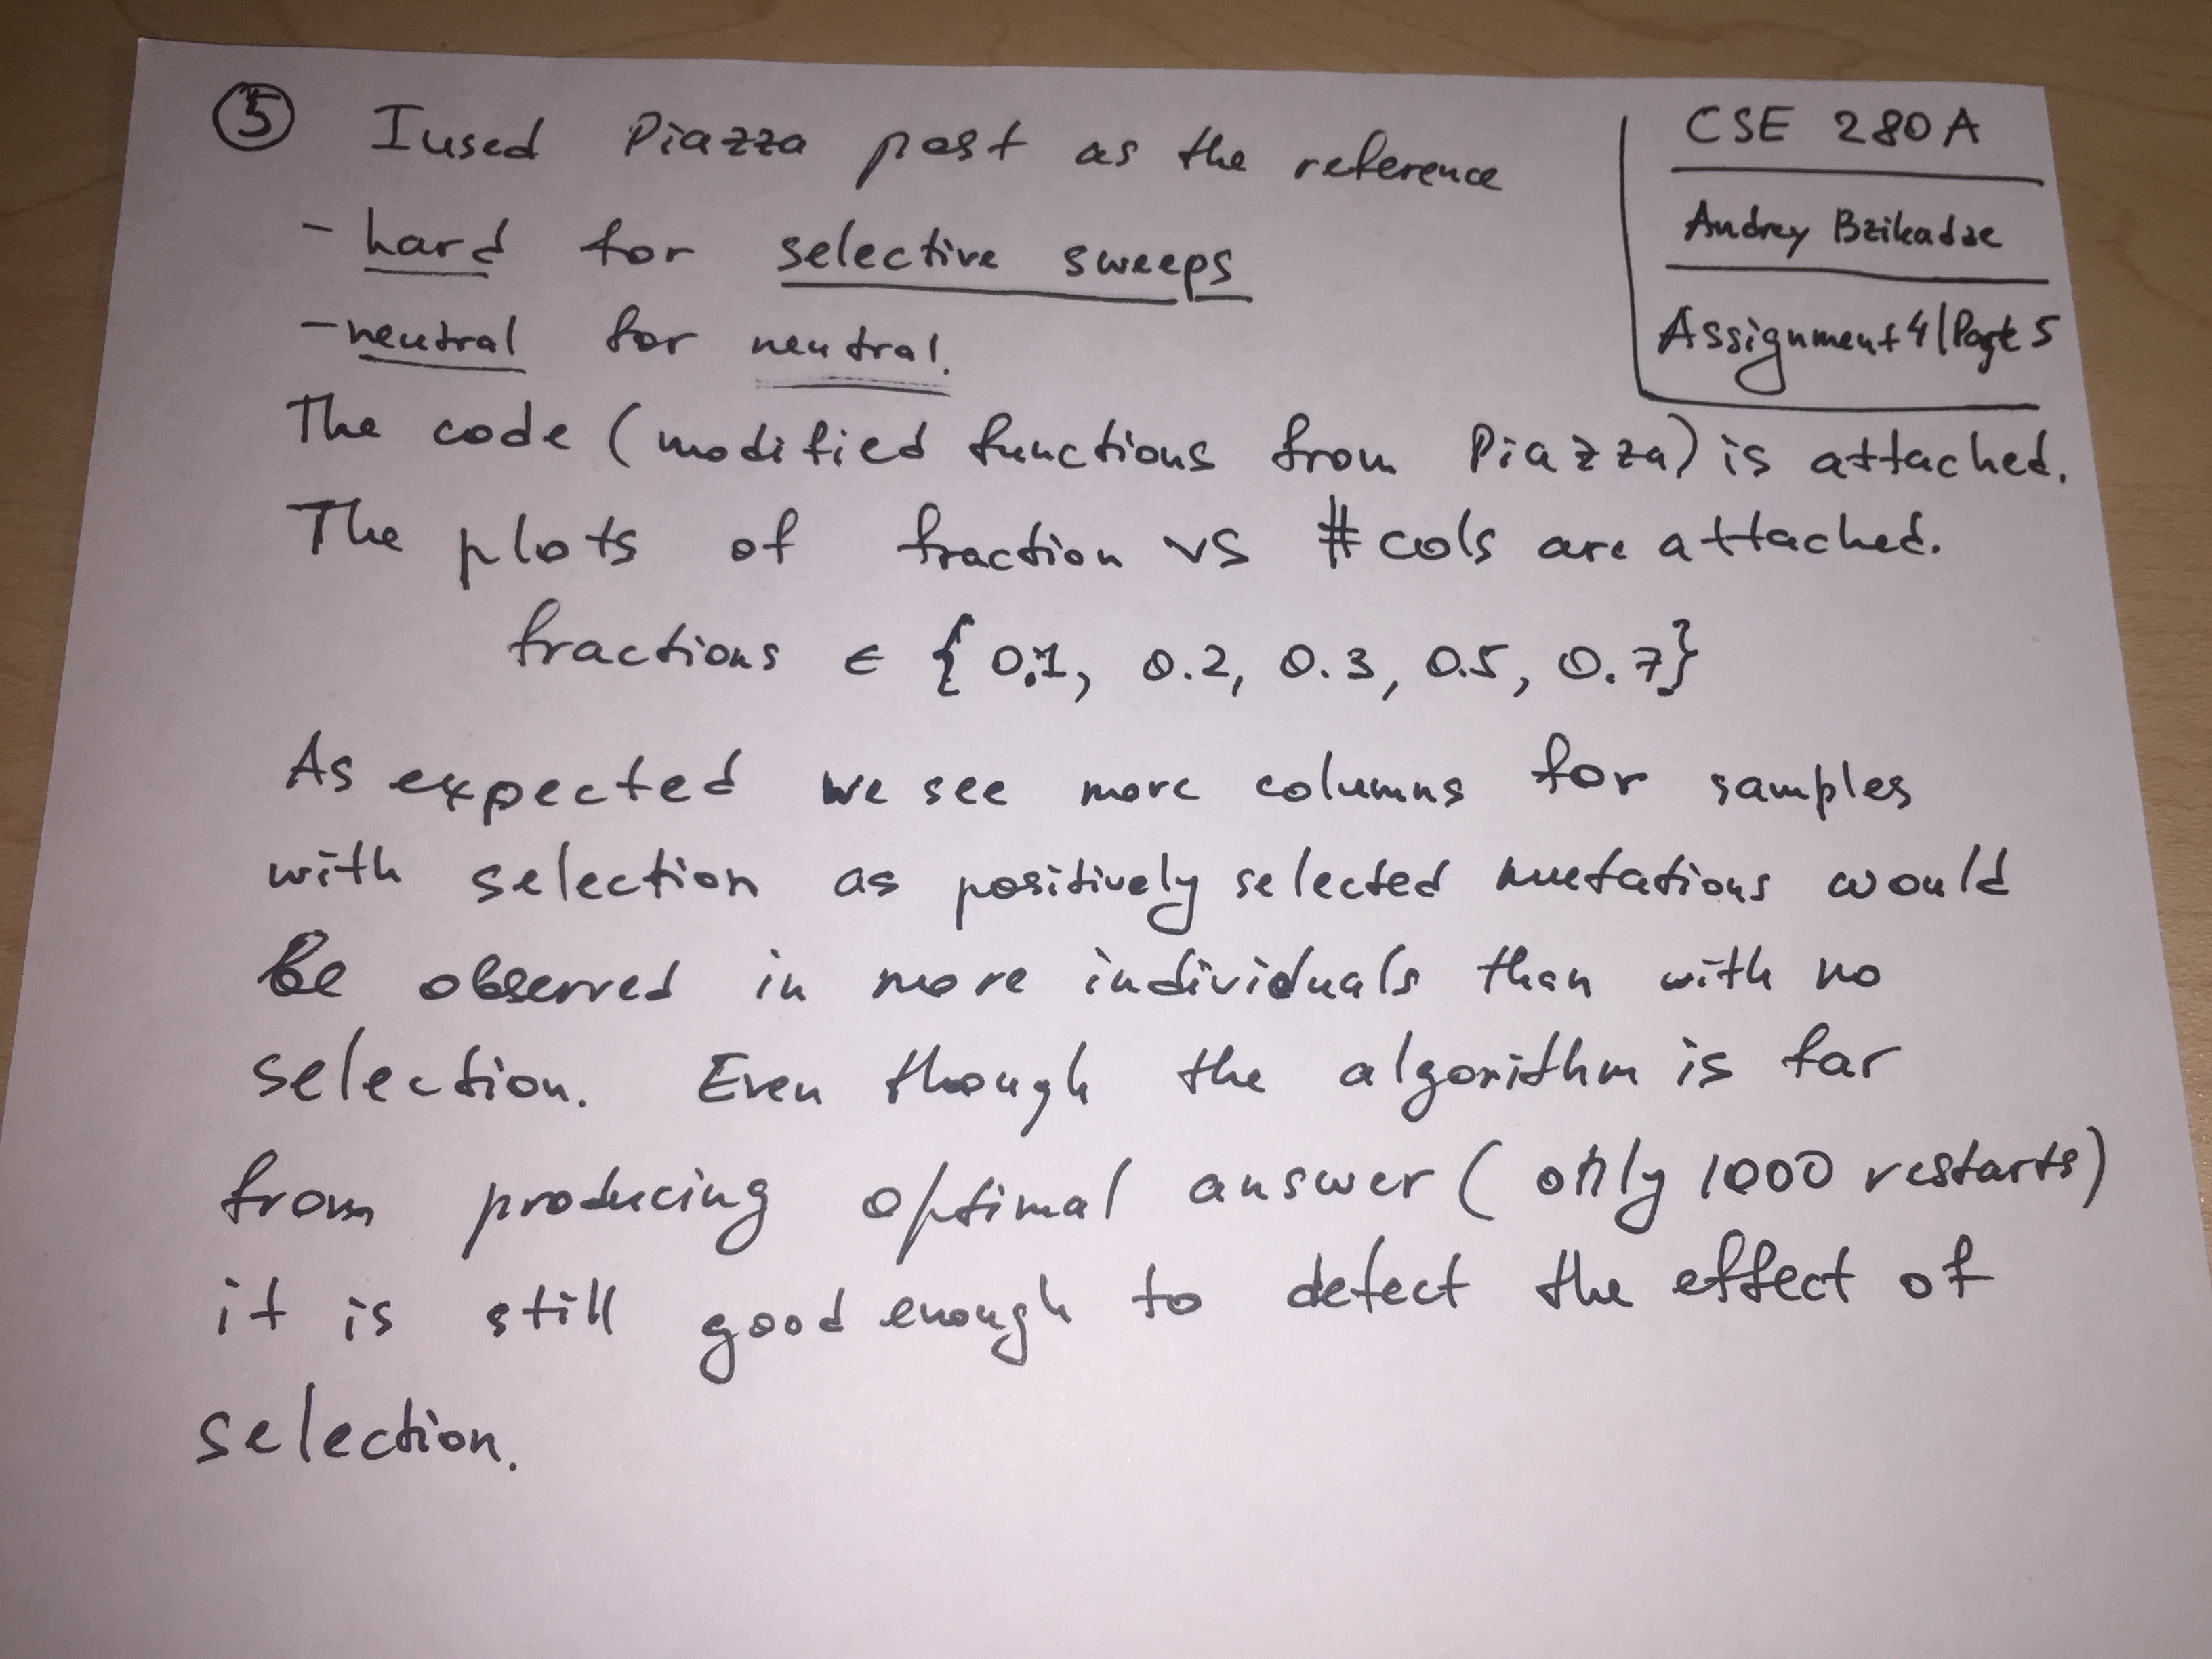 ⑤ I used Piazza post as the reference
- hard for selective sweeps
- neutral for neutral.
CSE 280A
Andrey Bzikadze
Assignment 4 | Page 5
The code (modified functions from Piazza) is attached.
The plots of fraction vs # cols are attached.
fractions ∈ { 0.1, 0.2, 0.3, 0.5, 0.7}
As expected we see more columns for samples
with selection as positively selected mutations would
be observed in more individuals than with no
selection. Even though the algorithm is far
from producing optimal answer (only 1000 restarts)
it is still good enough to detect the effect of
selection.